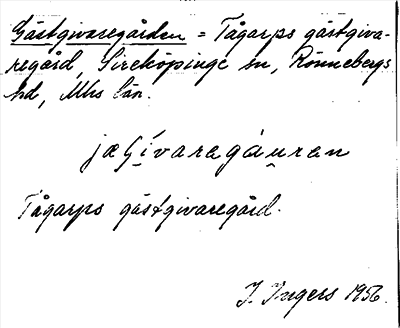 Gästgivaregården = Tågarps gästgiva-
regård, Sireköpinge sn, Rönnebergs
hd, Mhs län.
jæGívaragáuran
Tågarps gästgivaregård.
I. Ingers 1956.